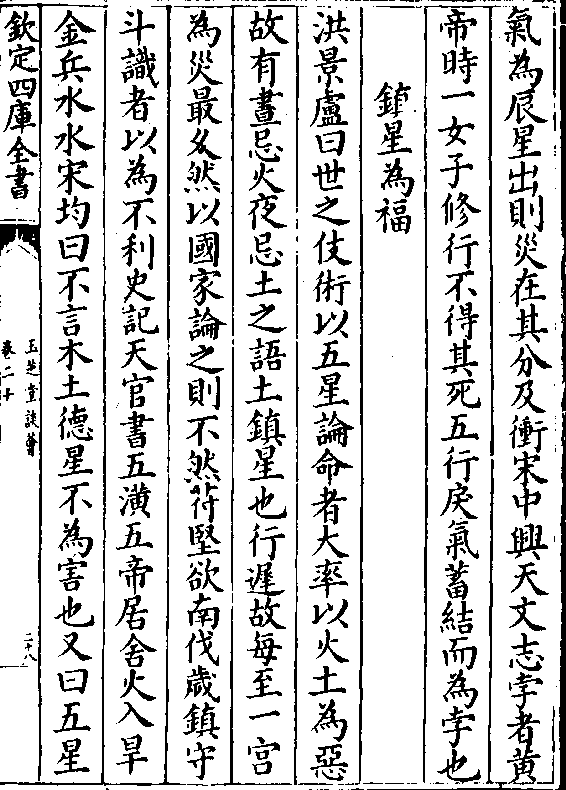 氣為辰星出則災在其分及衝宋中興天文志孛者黄
帝時一女子修行不得其死五行戾氣蓄結而為孛也
鎮星為福
洪景盧曰世之伎術以五星論命者大率以火土為惡
故有晝忌火夜忌土之語土鎮星也行遲故每至一宫
為災最久然以國家論之則不然苻堅欲南伐歲鎮守
斗識者以為不利史記天官書五潢五帝居舍火入旱
金兵水水宋均曰不言木土德星不為害也又曰五星
欽定四庫全書
玉芝堂談薈
卷二十
二十八